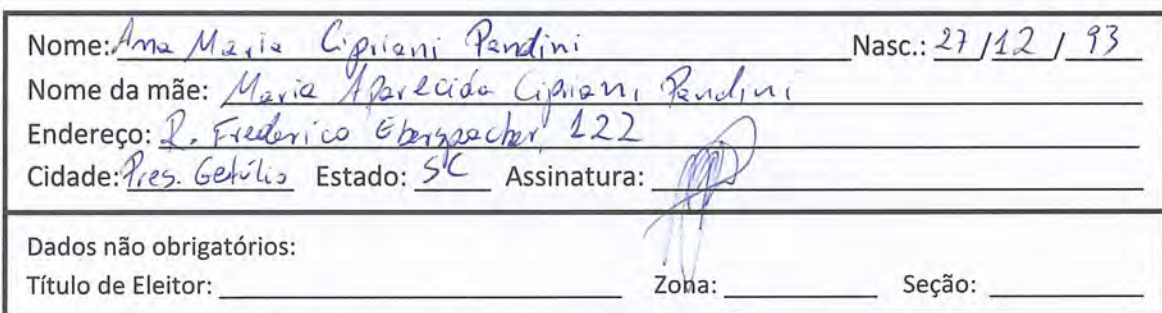 Nome: Ana Maria Cipriani Pandini Nasc.: 27 / 12 / 93
Nome da mãe: Maria Aparecida Cipriani Pandini
Endereço: R. Frederico 122
Cidade: Pres. Getúlio Estado: SC Assinatura:
Dados não obrigatórios:
Título de Eleitor: Zona: Seção: